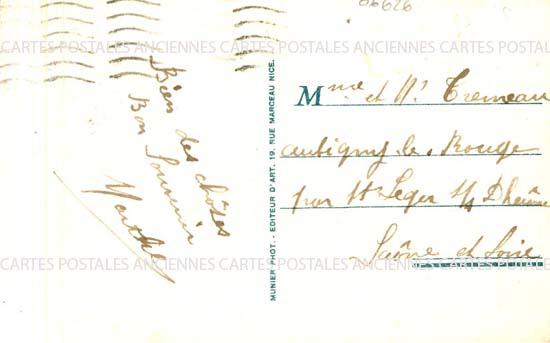 06626
CARTES POSTALES ANCIENNES CARTES POSTALES ANCIENNES CARTES POSTALES ANCIENNES
Bien des choses
Bon Souvenir
Marthe
MUNIER PHOT. - EDITEUR D'ART. 19, RUE MARCEAU NICE.
Mme et Mr Tremeau
aubigny le Rouge
par St Leger s/ Dheune
Saône et Loire
CARTES POSTALES ANCIENNES CARTES POSTALES ANCIENNES CARTES POSTALES ANCIENNES